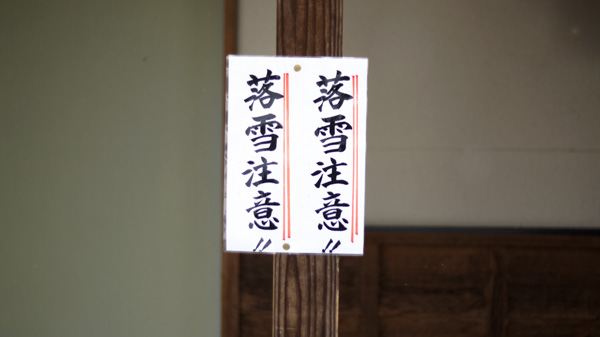 落雪注意!!
落雪注意!!